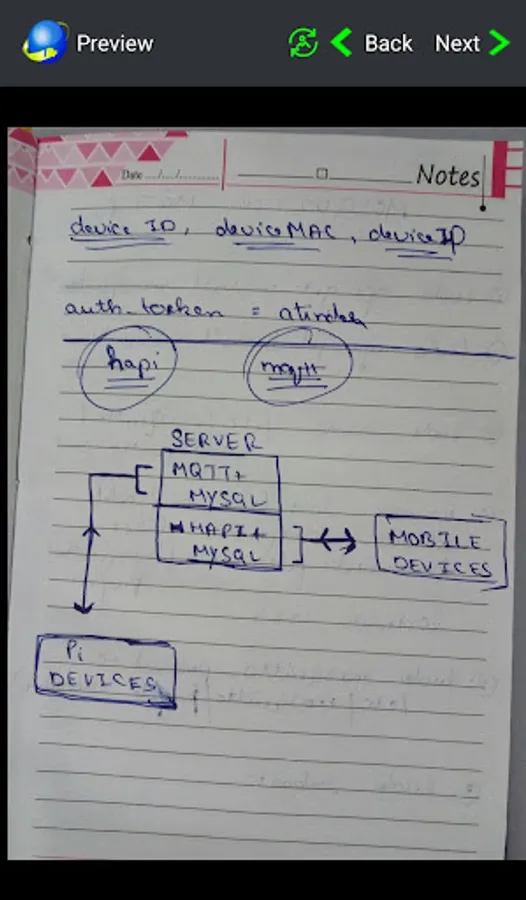 Preview
Back
Next
Date ..../..../............
Notes
device ID, device MAC, device IP
auth_torken =
hapi
mqtt
SERVER
MQTT+
MYSQL
HAPI+
MYSQL
MOBILE
DEVICES
Pi
DEVICES